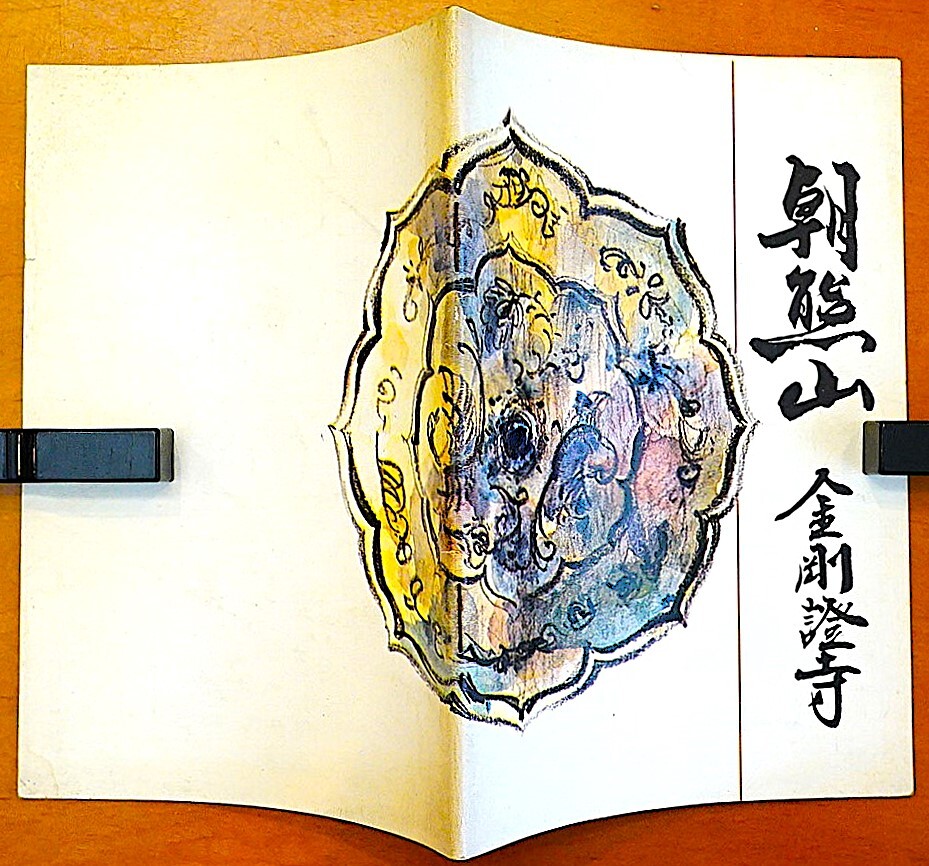 朝熊山 金剛證寺